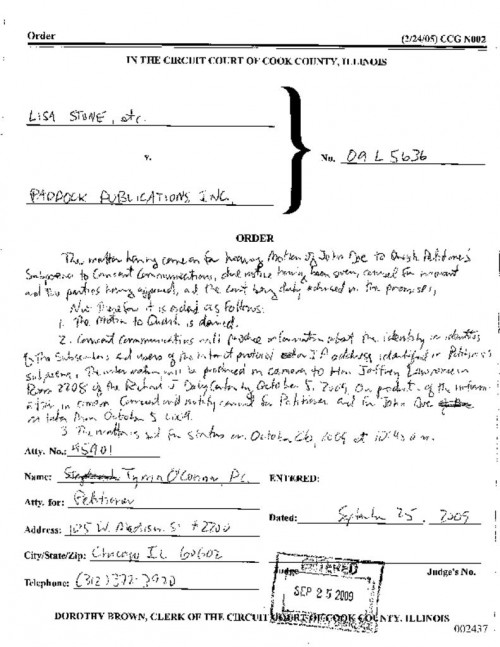 Order (2/24/05) CCG N002
IN THE CIRCUIT COURT OF COOK COUNTY, ILLINOIS
LISA STONE, etc.
v.
No. 09 L 5636
PADDOCK PUBLICATIONS, INC.
ORDER
The matter having come on for hearing Motion of John Doe to Quash Petitioner's
Subpoena to Comcast Communications, due notice having been given, counsel for movant
and the parties having appeared, and the court being duly advised in the premises,
Now Therefore it is ordered as follows:
1. The Motion to Quash is denied.
2. Comcast Communications will produce information about the identity or identities
of the Subscribers and users of the internet protocol IP address identified in Petitioner's
subpoena. The information will be produced in camera to Hon. Jeffrey Lawrence in
Room 2208 of the Richard J Daley Center by October 5, 2009. On production of the inform-
ation in camera Comcast will notify counsel for Petitioner and for John Doe
no later than October 5 2009.
3 The matter is set for status on October 26, 2009 at 10:45 a.m.
Atty. No.: 45901
Name: Tyrrin O'Connor, P.C. ENTERED:
Atty. for: Petitioner
Dated: September 25, 2009
Address: 105 W. Madison St #2200
City/State/Zip: Chicago IL 60602
Judge Judge's No.
ENTERED
Telephone: (312) 372-3920
SEP 25 2009
DOROTHY BROWN, CLERK OF THE CIRCUIT COURT OF COOK COUNTY, ILLINOIS
002437